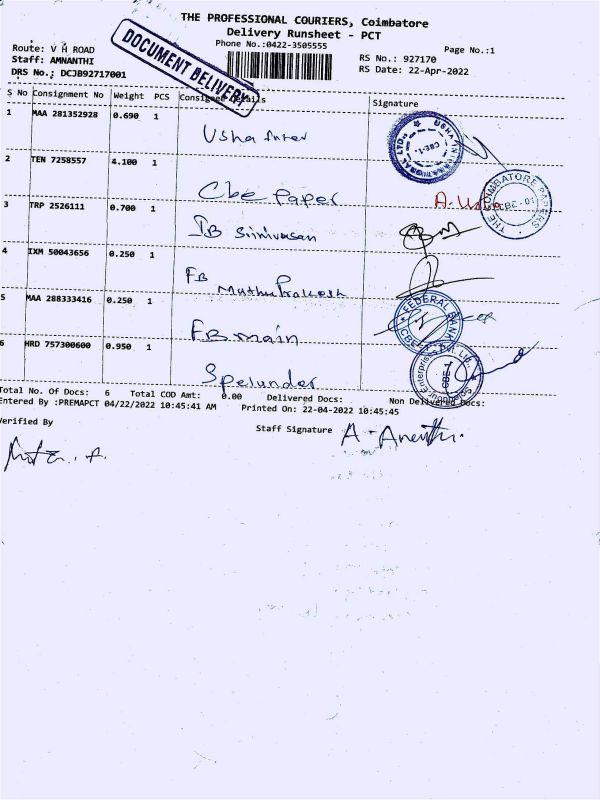 THE PROFESSIONAL COURIERS, Coimbatore
Delivery Runsheet - PCT
Phone No.:0422-3505555
Page No.:1
Route: V H ROAD
Staff: AMNANTHI
DRS No.: DCJB92717001
RS No.: 927170
RS Date: 22-Apr-2022
DOCUMENT DELIVERY
S No Consignment No Weight PCS Consignee Details Signature
1 MAA 281352928 0.690 1
Usha Inter
2 TEN 7258557 4.100 1
Cbe Paper
A. Usha
THE COIMBATORE PAPERS
CBE - 01
3 TRP 2526111 0.700 1
IB Srinivasan
4 IXM 50043656 0.250 1
FB
Muthu Prakash
5 MAA 288333416 0.250 1
FB main
FEDERAL BANK
CBE
6 HRD 757300600 0.950 1
Spelunder
Total No. Of Docs: 6 Total COD Amt: 0.00 Delivered Docs: Non Delivered Docs:
Entered By :PREMAPCT 04/22/2022 10:45:41 AM Printed On: 22-04-2022 10:45:45
Verified By
Staff Signature A. Ananthi.